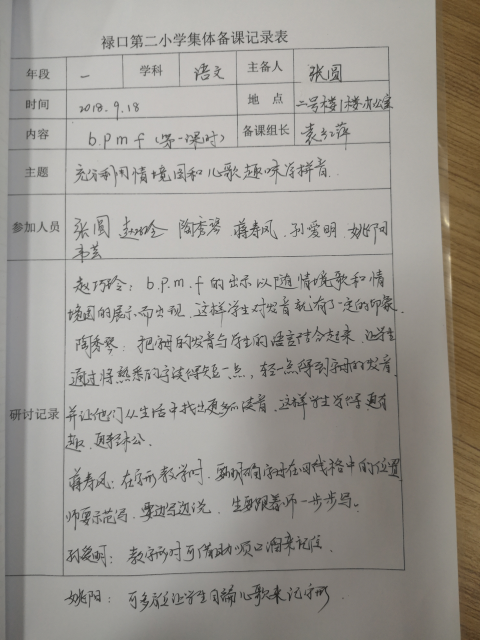 禄口第二小学集体备课记录表
年段 一 学科 语文 主备人 张圆
时间 2018.9.18 地点 二号楼1楼办公室
内容 b.p.m.f(第一课时) 备课组长 袁红萍
主题 充分利用情境图和儿歌趣味学拼音.
参加人员 张圆 赵巧玲 陶秀琴 蒋春风. 孙爱明. 姚阳
韦芸
研讨记录
赵巧玲:b.p.m.f的出示以随情境歌和情
境图的展示而出现.这样学生对发音就有了一定的印象.
陶秀琴:把字母的发音与学生的语言结合起来.让学生
通过将熟悉的字读得短一点,轻一点得到字母的发音.
并让他们从生活中找出更多的读音.这样学生学得更有
趣.
蒋春风:在字形教学时.要明确字母在四线格中的位置
师要示范写.要边写边说.生要跟着师一步步写。
孙爱明:教字形时可借助顺口溜来记住.
姚阳:可多让学生自编儿歌来记字形.